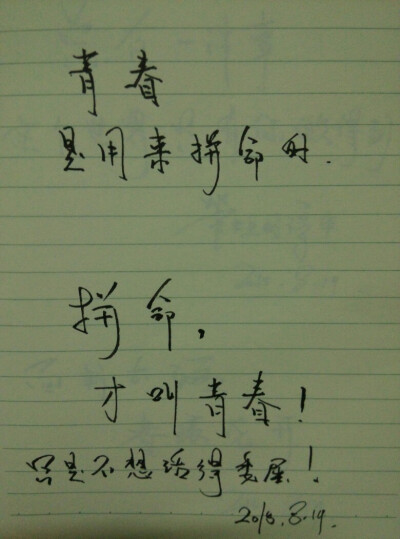 青春
是用来拼命的.
拼命,
才叫青春!
只是不想活得委屈!
2018.8.19.